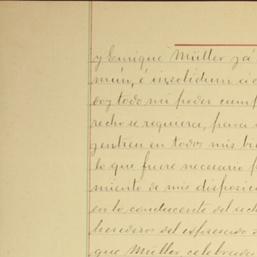 y Enrique Müller já
mún, é insolidum a c
doy todo mi poder cump
recho se requiera, para
gentien en todos mis bi
lo que fuere necesario p
miento de mis disposici
en lo conducente del
herederos del espresado
que Müller celebrado